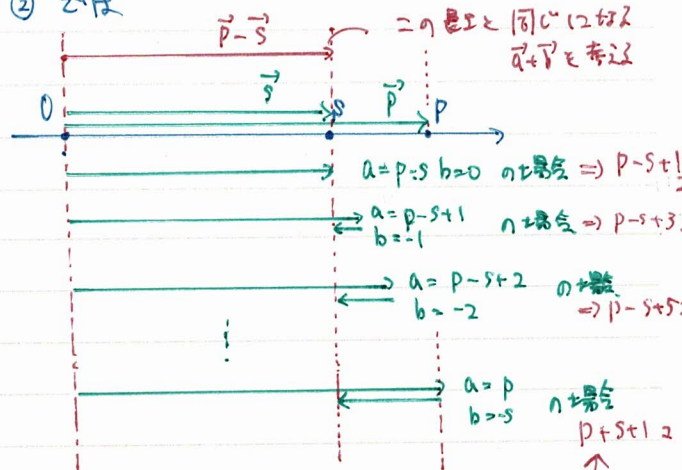 ② では
p⃗-s⃗
この長さと同じになる
a⃗+b⃗を考える
s⃗
p⃗
O
S
P
a=p-s b=0 の場合 ⇒ p-s+1
a=p-s+1
b=-1
の場合 ⇒ p-s+3
a=p-s+2
b=-2
の場合
⇒ p-s+5
a=p
b=-s
の場合
p+s+1